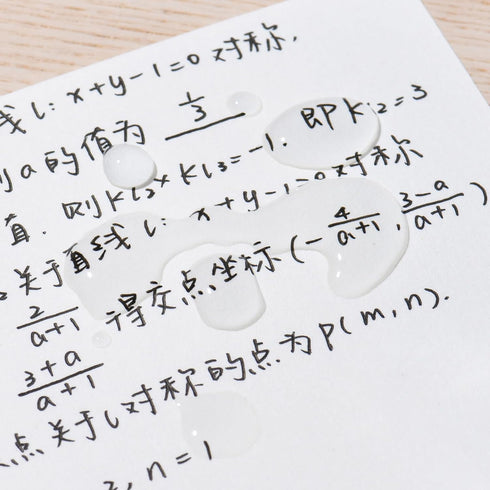 线 l: x+y-1=0 对称,
则 a 的值为 1/3
直. 则 kl₂×kl₃=-1. 即 kl₂=3
关于直线 l: x+y-1=0 对称
2/(a+1) 得交点坐标 (-4/(a+1), (3-a)/(a+1))
(3+a)/(a+1)
点关于 l 对称的点为 P(m,n).
2, n=1